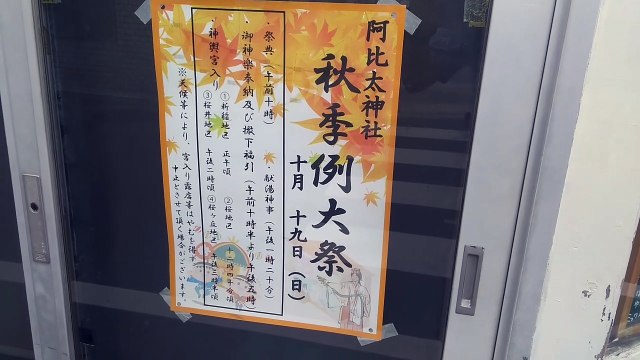 阿比太神社
秋季例大祭
十月 十九日（日）
・祭典（午前十時） ・献湯神事（午後一時二十分）
・御神楽奉納及び撤下福引（午前十時半より午後五時）
・神輿宮入り
①新稲地区 正午頃 ②桜地区 十二時四十分頃
③桜井地区 午後二時頃 ④桜ヶ丘地区 午後三時半頃
※天候等により、宮入り露店等はやむを得ず
中止とさせて頂く場合がございます。